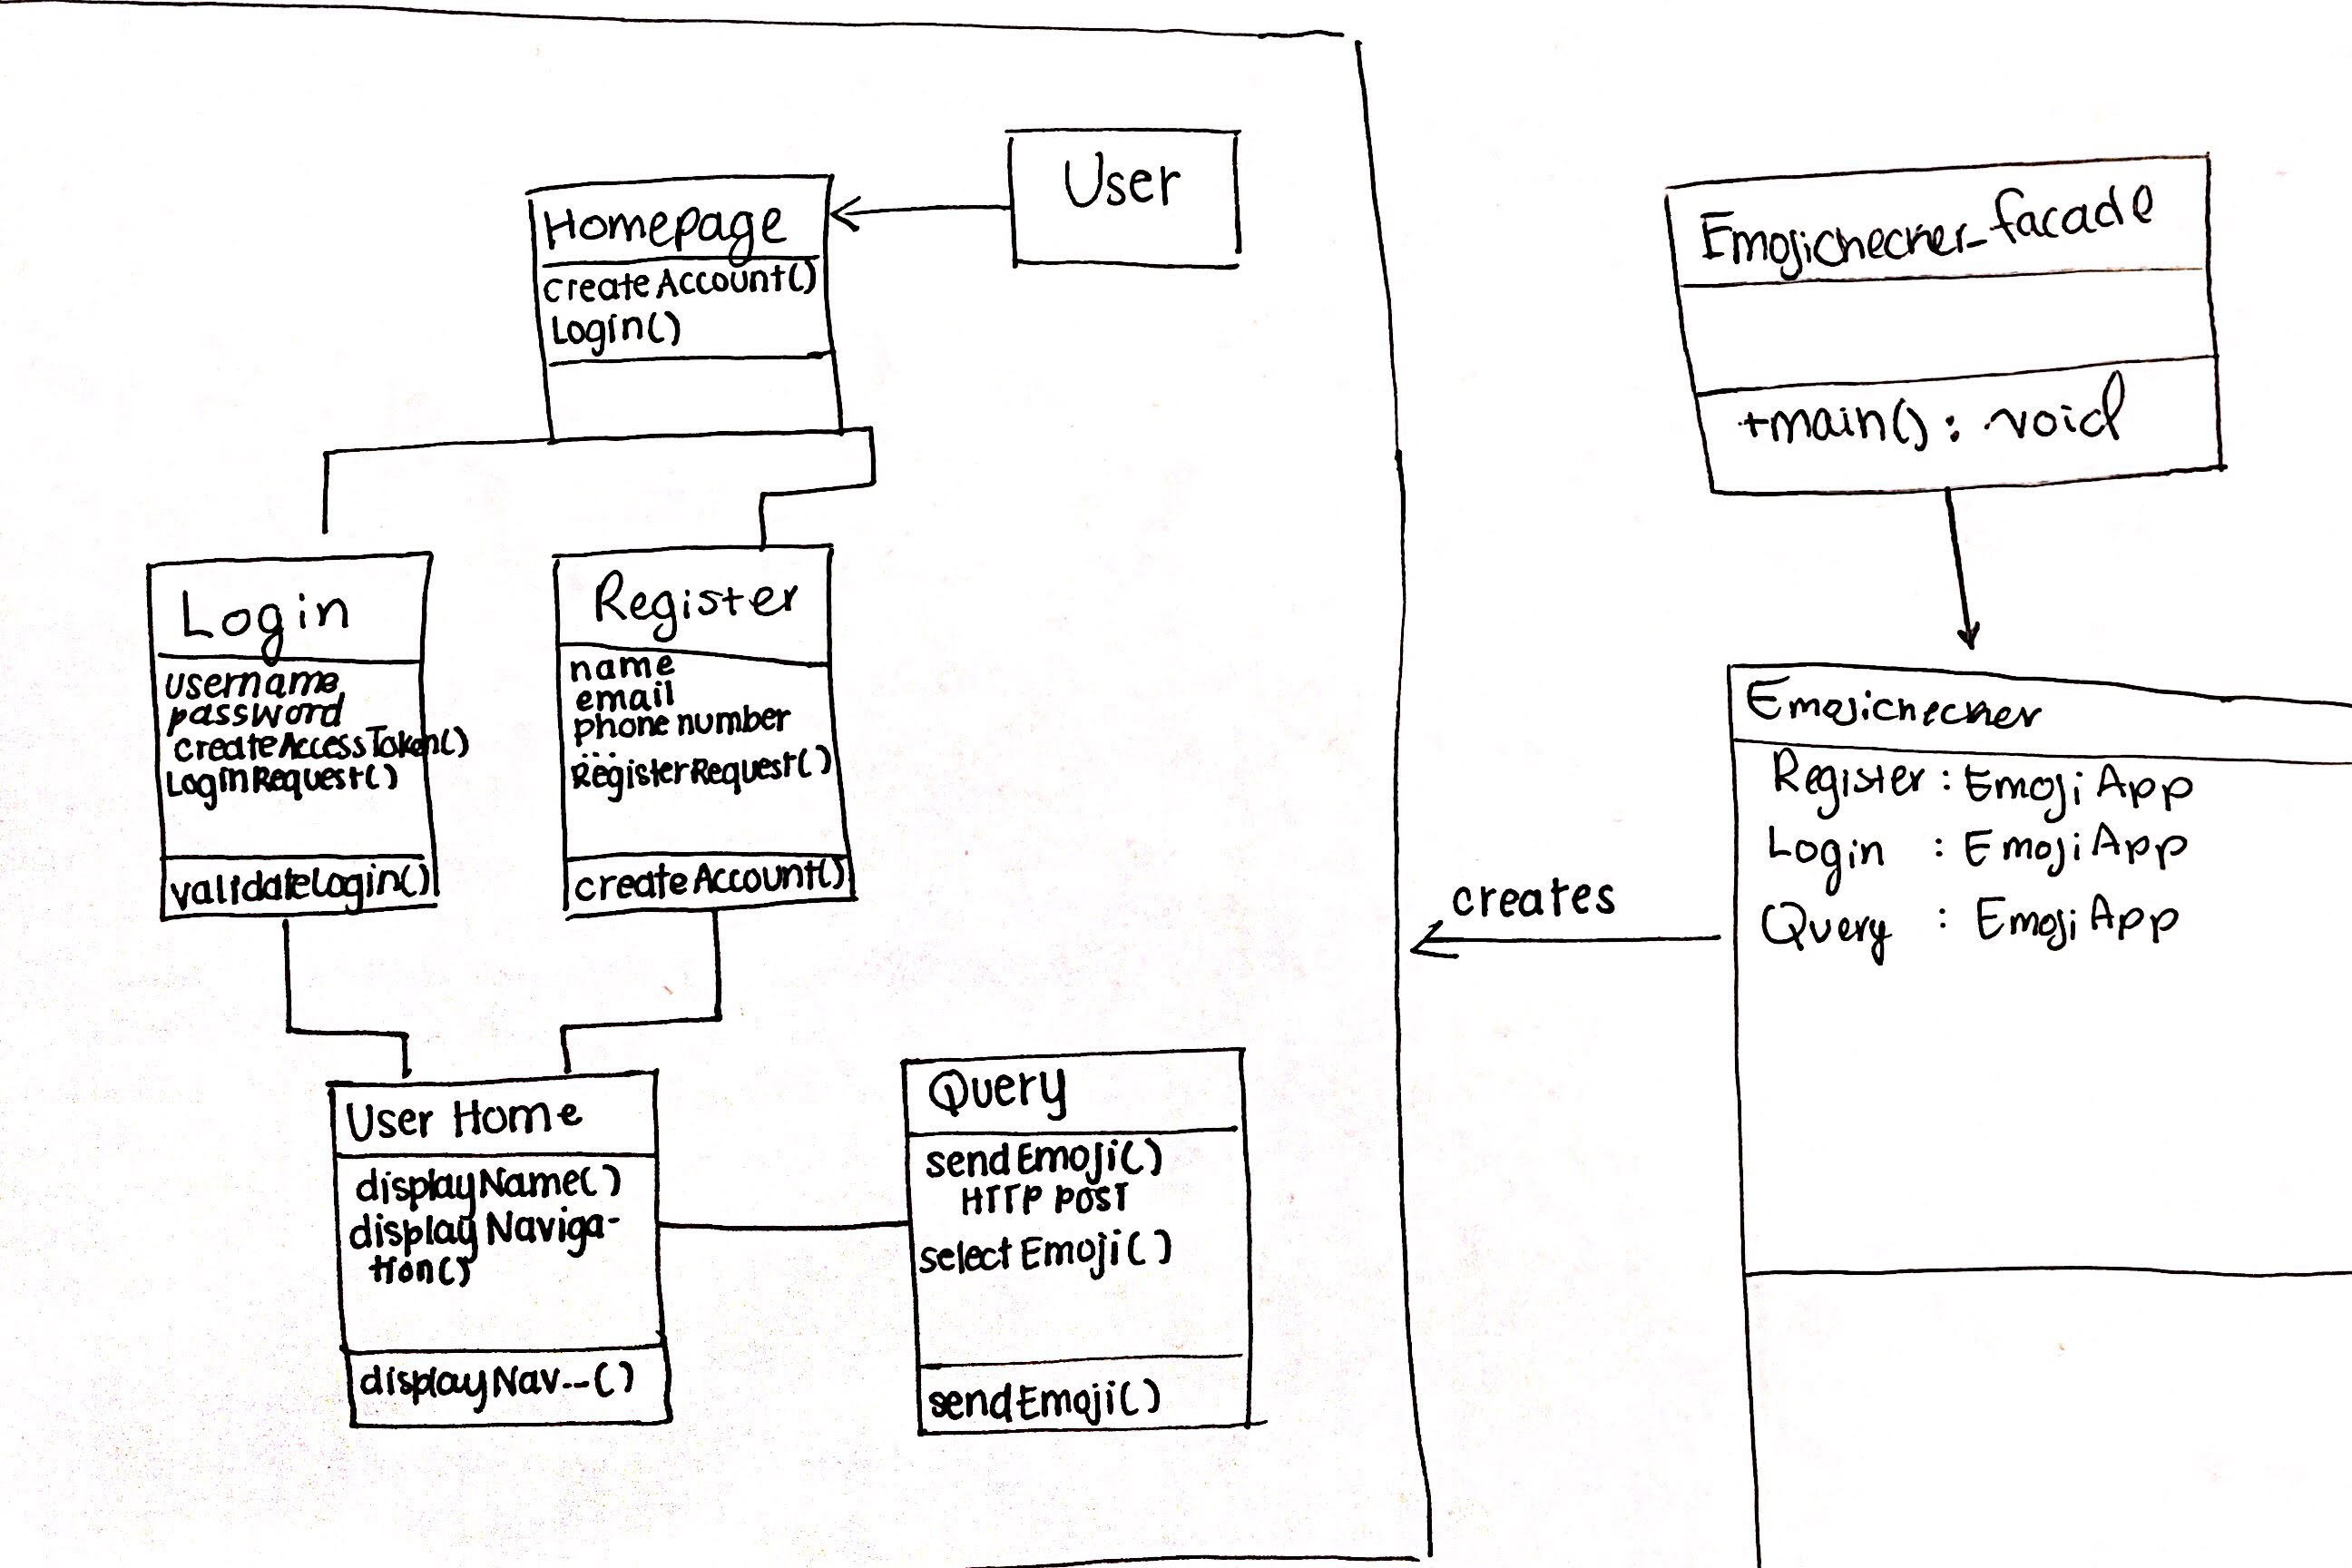 User
Homepage
createAccount()
Login()
Login
username
password
createAccessToken()
LoginRequest()
validateLogin()
Register
name
email
phone number
...
RegisterRequest()
createAccount()
User Home
displayName()
displayNaviga-
tion()
displayNav--()
Query
sendEmoji()
HTTP POST
selectEmoji()
sendEmoji()
creates
Emojichecker_facade
+main() : void
Emojichecker
Register : EmojiApp
Login : EmojiApp
Query : EmojiApp